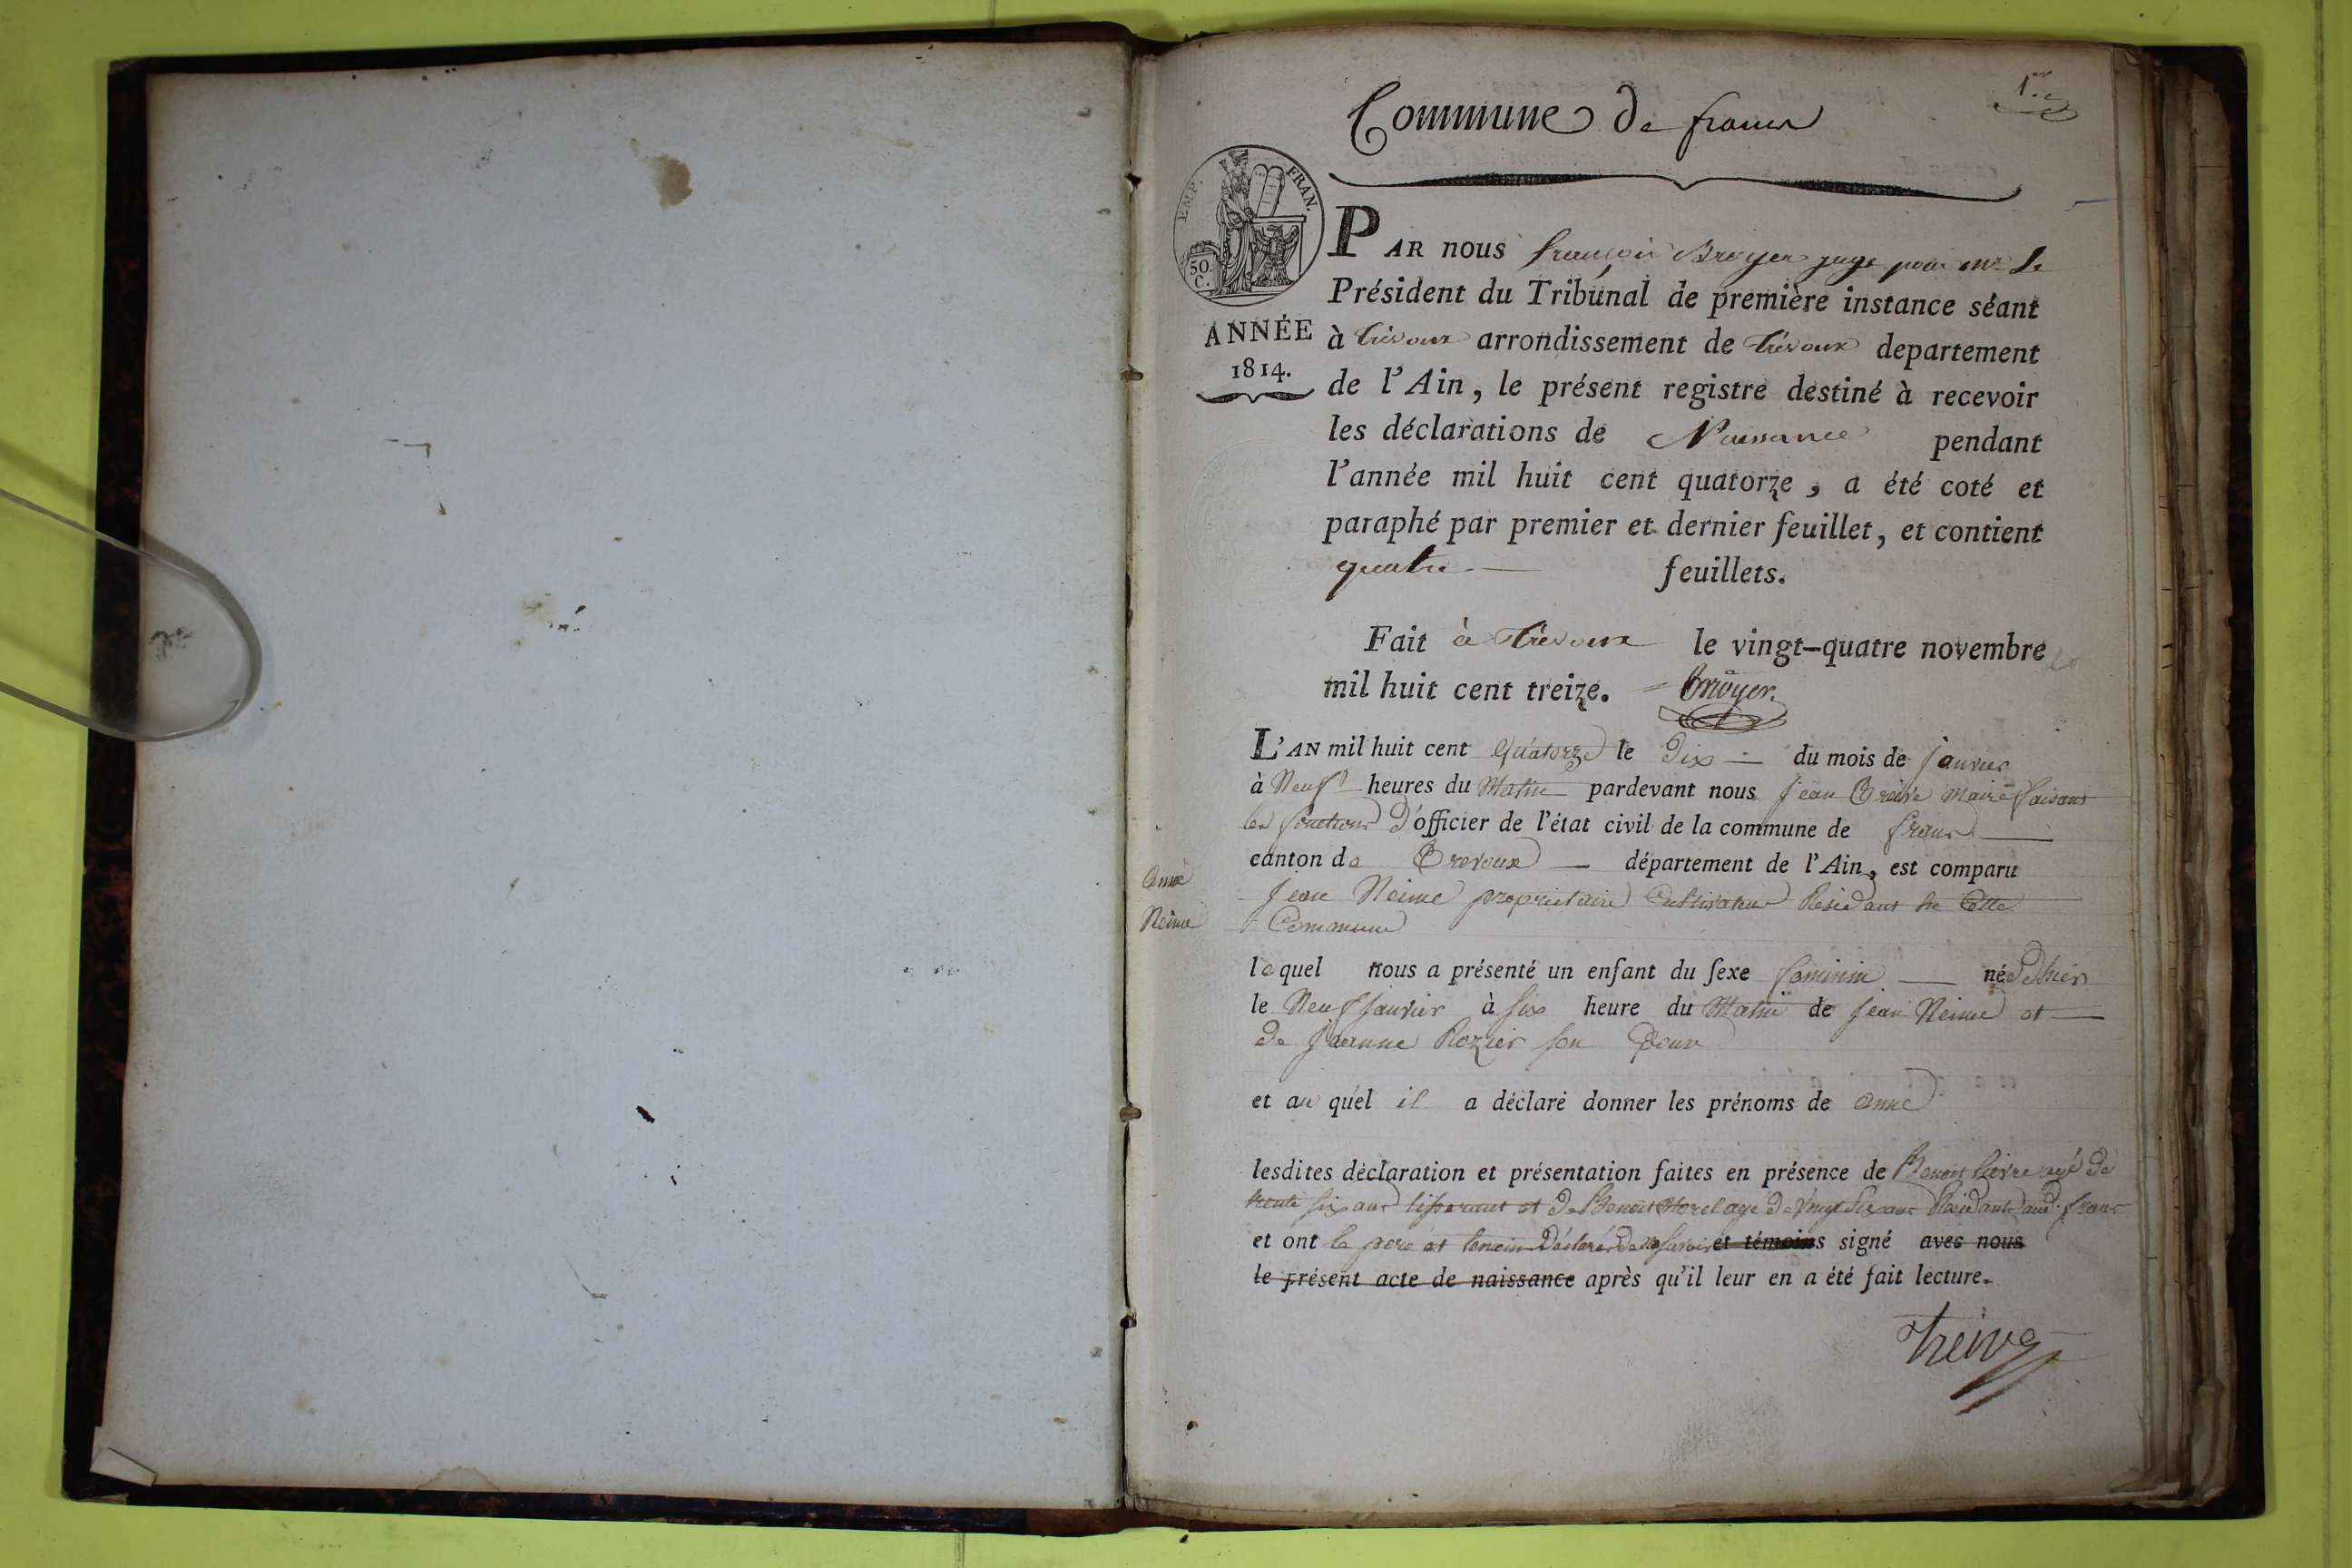 1.er
Commune de frans
EMP. FRAN.
50.
C.
ANNÉE
1814.
PAR nous françois Broyer juge pour mr le
Président du Tribunal de première instance séant
à trévoux arrondissement de trévoux departement
de l'Ain, le présent registre destiné à recevoir
les déclarations de Naissance pendant
l'année mil huit cent quatorze, a été coté et
paraphé par premier et dernier feuillet, et contient
quatre feuillets.
Fait à trévoux le vingt-quatre novembre
mil huit cent treize. Broyer
L'AN mil huit cent quatorze le Dix du mois de janvier
à Neuf heures du Matin pardevant nous jean Treive Maire faisant
les fonctions d'officier de l'état civil de la commune de frans
canton de Trevoux département de l'Ain, est comparu
Anne
Neime
jean Neime proprietaire Cultivateur Residant en Cette
Commune
lequel nous a présenté un enfant du sexe feminin née dhier
le Neuf janvier à six heure du Matin de jean Neime et
de jeanne Rozier son
et au quel il a déclaré donner les prénoms de anne
lesdites déclaration et présentation faites en présence de Benoit agé de
trente six ans tisserant et de Benoit Morel agé de vingt six ans Residants aud. frans
et ont le pere et temoin Déclaré de ne savoir et témoins signé avec nous
le présent acte de naissance après qu'il leur en a été fait lecture.
Treive